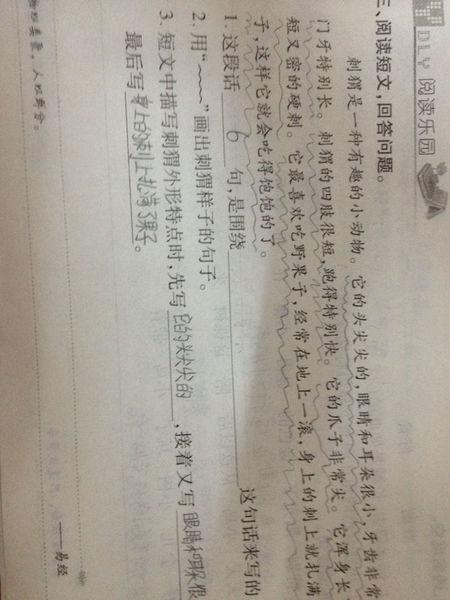 DIY 阅读乐园
三、阅读短文，回答问题。
刺猬是一种有趣的小动物。它的头尖尖的，眼睛和耳朵很小，牙齿非常
门牙特别长。刺猬的四肢很短，跑得特别快。它的爪子非常尖。它浑身长
短又密的硬刺。它最喜欢吃野果子，经常在地上一滚，身上的刺上就扎满
子，这样它就会吃得饱饱的了。
1. 这段话 6 句，是围绕 这句话来写的
2. 用“﹏﹏”画出刺猬样子的句子。
3. 短文中描写刺猬外形特点时，先写 它的头尖尖的 ，接着又写 眼睛和耳朵很
最后写 身上的刺上扎满了果子 。
物以类聚，人以群分。 ——易经